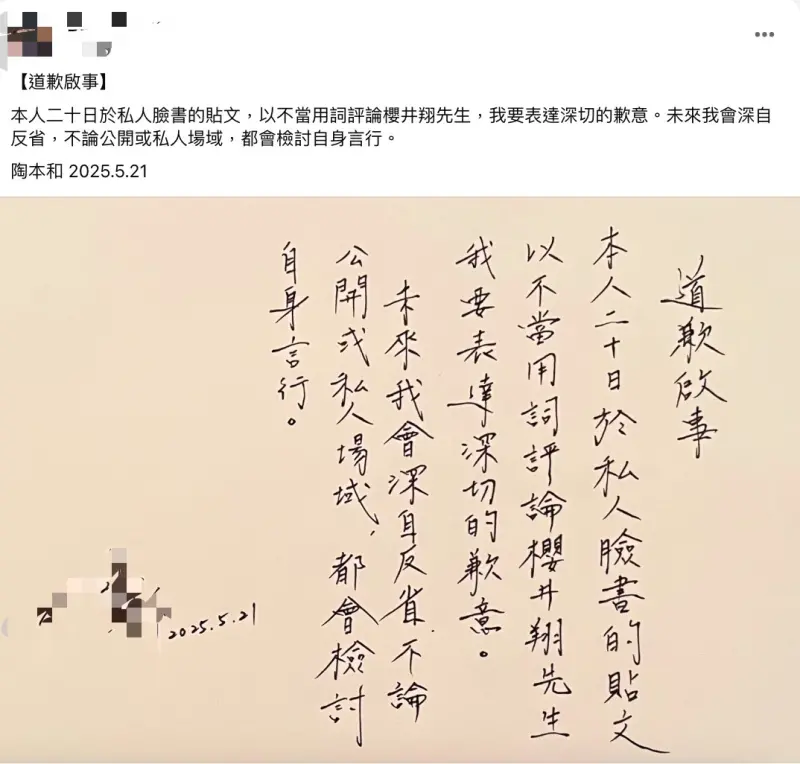 【道歉啟事】
本人二十日於私人臉書的貼文，以不當用詞評論櫻井翔先生，我要表達深切的歉意。未來我會深自
反省，不論公開或私人場域，都會檢討自身言行。
陶本和 2025.5.21
道歉啟事
本人二十日於私人臉書的貼文
以不當用詞評論櫻井翔先生
我要表達深切的歉意。
未來我會深自反省，不論
公開或私人場域，都會檢討
自身言行。
2025.5.21